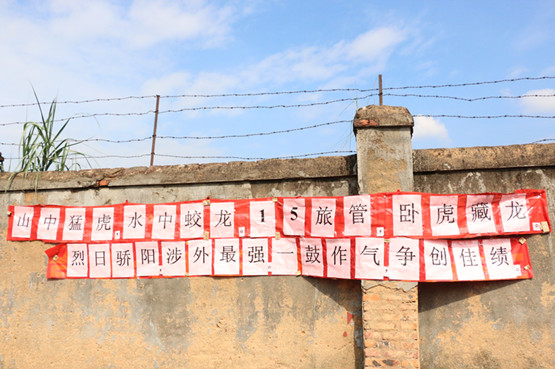 山中猛虎水中蛟龙15旅管卧虎藏龙
烈日骄阳涉外最强一鼓作气争创佳绩